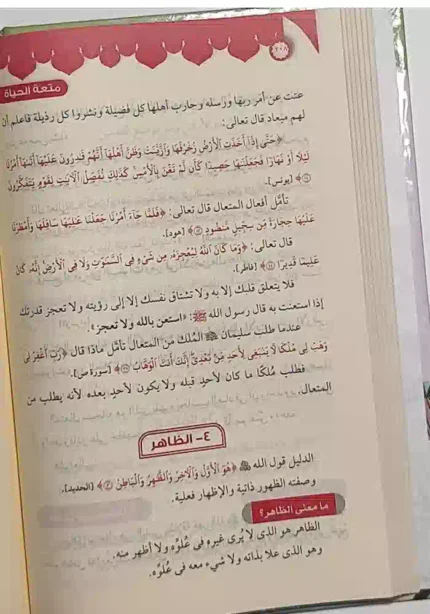 متعة الحياة
عتت عن أمر ربها ورسله وحارب أهلها كل فضيلة ونشروا كل رذيلة فاعلم أن
لهم ميعاد قال تعالى:
﴿حَتَّىٰ إِذَا أَخَذَتِ الْأَرْضُ زُخْرُفَهَا وَازَّيَّنَتْ وَظَنَّ أَهْلُهَا أَنَّهُمْ قَادِرُونَ عَلَيْهَا أَتَاهَا أَمْرُنَا
لَيْلًا أَوْ نَهَارًا فَجَعَلْنَاهَا حَصِيدًا كَأَن لَّمْ تَغْنَ بِالْأَمْسِ كَذَٰلِكَ نُفَصِّلُ الْآيَاتِ لِقَوْمٍ يَتَفَكَّرُونَ
﴾ [يونس].
تأمَّل أفعال المتعال قال تعالى: ﴿فَلَمَّا جَاءَ أَمْرُنَا جَعَلْنَا عَالِيَهَا سَافِلَهَا وَأَمْطَرْنَا
عَلَيْهَا حِجَارَةً مِّن سِجِّيلٍ مَّنضُودٍ﴾ [هود].
قال تعالى: ﴿وَمَا كَانَ اللَّهُ لِيُعْجِزَهُ مِن شَيْءٍ فِي السَّمَاوَاتِ وَلَا فِي الْأَرْضِ إِنَّهُ كَانَ
عَلِيمًا قَدِيرًا﴾ [فاطر].
فلا يتعلق قلبك إلا به ولا تشتاق نفسك إلا إلى رؤيته ولا تعجز قدرتك
إذا استعنت به قال رسول الله ﷺ: «استعن بالله ولا تعجز».
عندما طلب سليمان المُلك من المتعال تأمَّل ماذا قال ﴿رَبِّ اغْفِرْ لِي
وَهَبْ لِي مُلْكًا لَّا يَنبَغِي لِأَحَدٍ مِّن بَعْدِي إِنَّكَ أَنتَ الْوَهَّابُ﴾ [سورة ص].
فطلب مُلكًا ما كان لأحدٍ قبله ولا يكون لأحدٍ بعده لأنه يطلب من
المتعال.
٤- الظاهر
الدليل قول الله ﴿هُوَ الْأَوَّلُ وَالْآخِرُ وَالظَّاهِرُ وَالْبَاطِنُ﴾ [الحديد].
وصفته الظهور ذاتية والإظهار فعلية.
ما معنى الظاهر؟
الظاهر هو الذي لا يُرى غيره في عُلوِّه ولا أظهر منه.
وهو الذي علا بذاته ولا شيء معه في عُلوِّه.